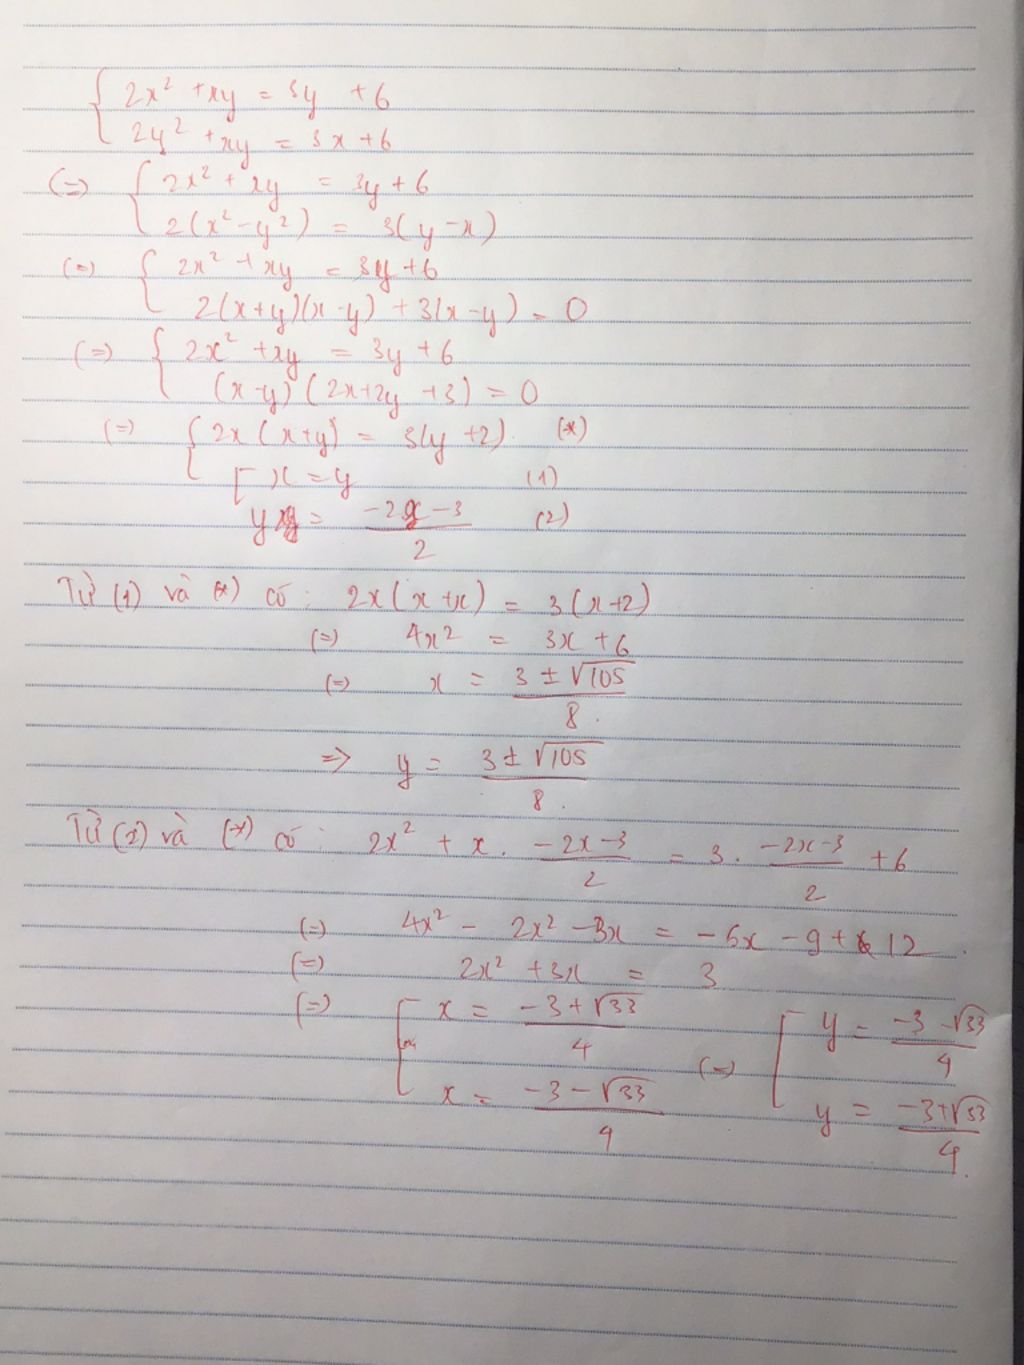 { 2x² + xy = 3y + 6
2y² + xy = 3x + 6
(=) { 2x² + xy = 3y + 6
2(x² - y²) = 3(y - x)
(=) { 2x² + xy = 3y + 6
2(x+y)(x-y) + 3(x-y) = 0
(=) { 2x² + xy = 3y + 6
(x-y)(2x+2y+3) = 0
(=) { 2x(x+y) = 3(y+2) (*)
[ x = y (1)
y = (-2x-3)/2 (2)
Từ (1) và (*) có: 2x(x+x) = 3(x+2)
(=) 4x² = 3x + 6
(=) x = (3 ± √105)/8.
=> y = (3 ± √105)/8.
Từ (2) và (*) có: 2x² + x . (-2x-3)/2 = 3 . (-2x-3)/2 + 6
(=) 4x² - 2x² - 3x = -6x - 9 + 12.
(=) 2x² + 3x = 3
(=) [ x = (-3+√33)/4 (=) [ y = (-3-√33)/4
x = (-3-√33)/4 y = (-3+√33)/4.